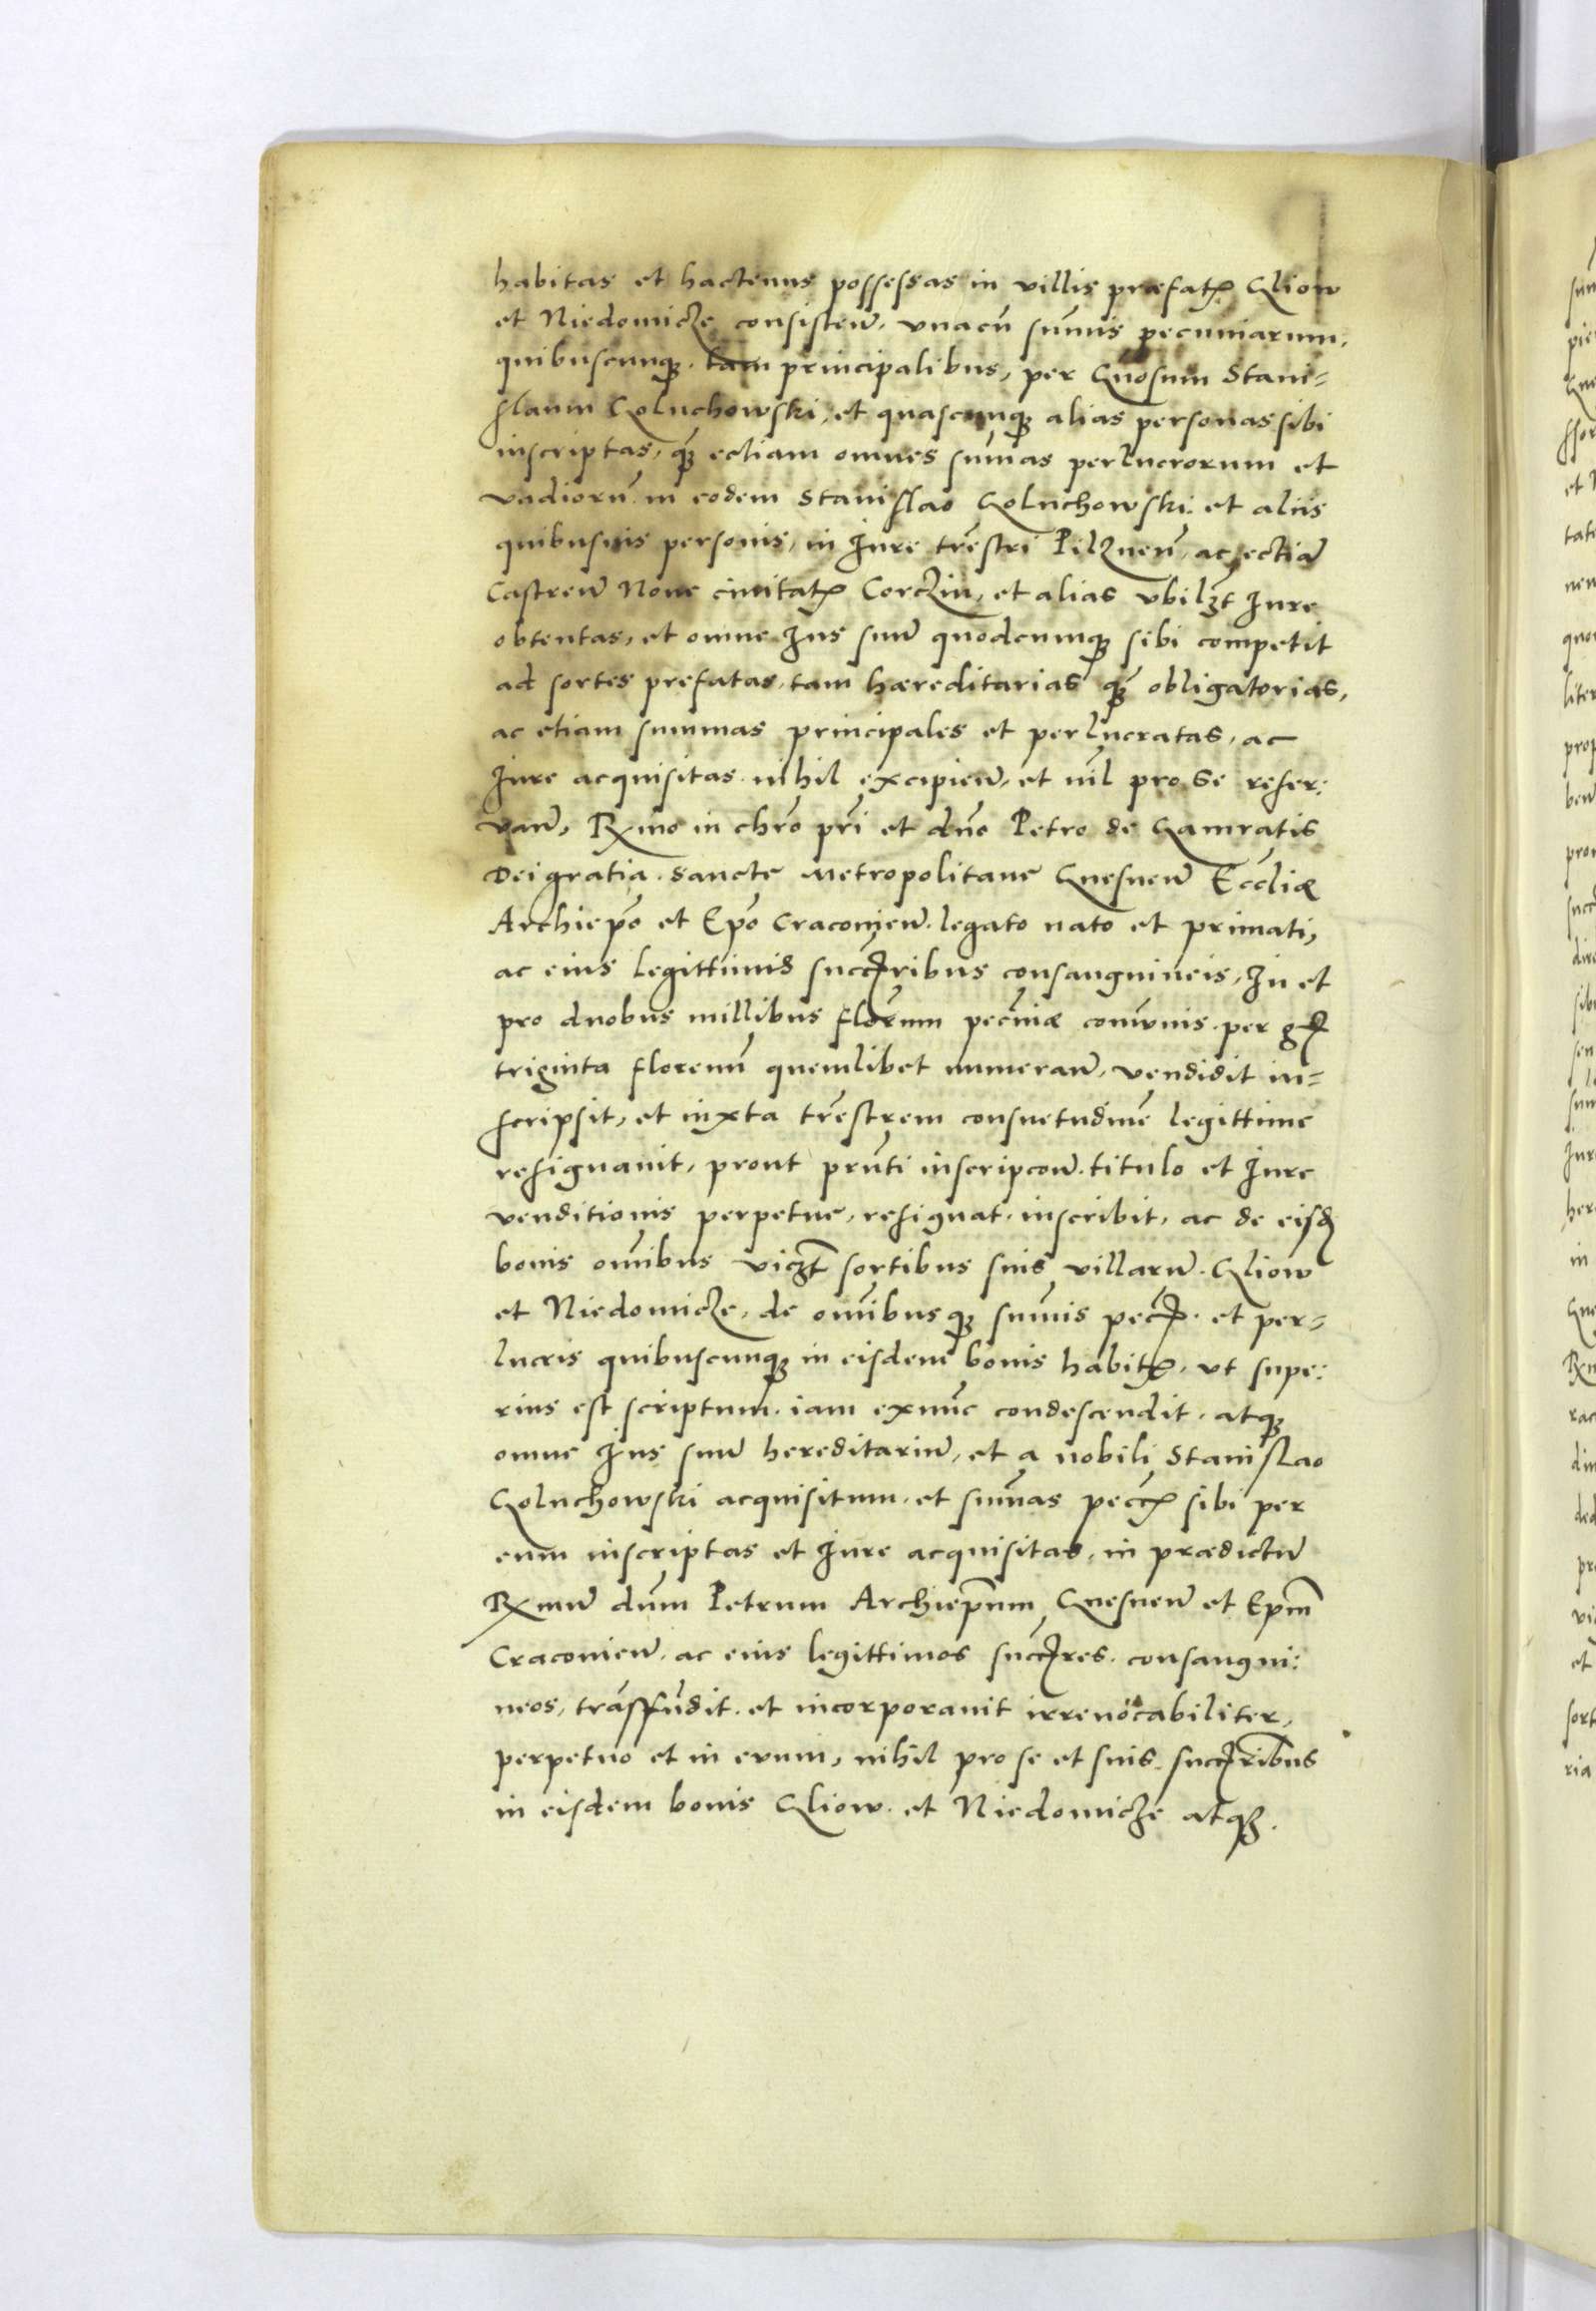 habitas et hactenus possessas in villis præfatꝭ Gliow
et Niedomicze consisteñ. vnacū sum̄is pecuniarum.
quibuscunqꝫ. tam principalibus, per Gñosum Stani=
slaum Goluchowski, et quascunqꝫ alias personas sibi
inscriptas, qꝫ̃ ectiam omnes sum̄as perlucrorum et
vadiorū in eodem Stanislao Goluchowski: et aliis
quibusuis personis, in Iure tr̄estri Pilzneñ, ac ectiā
Castreñ Noue ciuitatꝭ Corczin, et alias vbilꝫt Iure
obtentas, et omne Ius suū quodcumqꝫ sibi competit
ad sortes prefatas, tam hæreditarias qꝫ̃ obligatorias,
ac etiam summas principales et perlucratas, ac
Iure acquisitas. nihil excipieñ, et nīl pro se reser:
uañ, Rx̄mo in chr̄o pr̄i et dño Petro de Gamratis
Dei gratia. Sancte Metropolitane Gnesneñ Eccl̄iæ
Archiep̄o et Ep̄o Cracouieñ. legato nato et primati,
ac eius legittimis succꝭribus consanguineis, In et
pro duobus millibus flor̄enum pecuīæ com̄unis. per gꝭ
triginta florenū quemlibet numerañ, vendidit in=
scripsit, et iuxta tr̄estrem consuetudinē legittime
resignauit, prout pr̄nti inscripcoñ. titulo et Iure
venditionis perpetue, resignat. inscribit, ac de eisd
bonis om̄ibus viczt̄ sortibus suis villarū. Gliow
et Niedomicze, de om̄ibusqꝫ sum̄is pecꝭ. et per=
lucris quibuscunqꝫ in eisdem bonis habitꝭ, vt supe:
rius est scriptum. iam exnūc condescendit. atqꝫ
omne Ius suū hereditariū, et a nobili Stanislao
Goluchowski acquisitum. et sum̄as pecc̄ꝭ sibi per
eum inscriptas et Iure acquisitas, in prædictū
Rx̄mū dn̄m Petrum Archiep̄um Gnesneñ et Ep̄m
Cracouieñ. ac eius legittimos succꝭres. consangui:
neos, trāsfūdit. et incorporauit irreuocabiliter,
perpetuo et in euum, nihil pro se et suis. succꝭribus
in eisdem bonis Gliow. et Niedomicze atqꝫ.